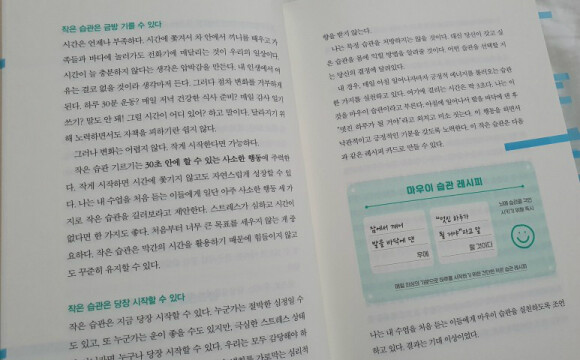 작은 습관은 금방 기를 수 있다
시간은 언제나 부족하다. 시간에 쫓겨서 차 안에서 끼니를 때우고 가
족들과 바다에 놀러가도 전화기에 매달리는 것이 우리의 일상이다.
시간이 늘 충분하지 않다는 생각은 압박감을 만든다. 내 인생에서 여
유는 결코 없을 것이라 생각하게 된다. 그러다 점차 변화를 거부하게
된다. 하루 30분 운동? 매일 저녁 건강한 식사 준비? 매일 감사 일기
쓰기? 말도 안 돼! 그럴 시간이 어디 있어? 하고 말이다. 달라지기 위
해 노력하면서도 자책을 피하기란 쉽지 않다.
그러나 변화는 어렵지 않다. 작게 시작한다면 가능하다.
작은 습관 기르기는 30초 안에 할 수 있는 사소한 행동에 주력한
다. 작게 시작하면 시간에 쫓기지 않고도 자연스럽게 성장할 수 있
다. 나는 내 수업을 처음 듣는 이들에게 일단 아주 사소한 행동 세 가
지로 작은 습관을 길러보라고 제안한다. 스트레스가 심하고 시간이
없다면 한 가지도 좋다. 처음부터 너무 큰 목표를 세우지 않는 게 중
요하다. 작은 습관은 막간의 시간을 활용하기 때문에 힘들이지 않고
도 꾸준히 유지할 수 있다.
작은 습관은 당장 시작할 수 있다
작은 습관은 지금 당장 시작할 수 있다. 누군가는 절박한 심정일 수
도 있고, 또 누군가는 운이 좋을 수도 있지만, 극심한 스트레스 상태
누구나 당장 시작할 수 있다. 우리는 모두 감당해야 하
가로막는 심리적
향을 받지 않는다.
나는 특정 습관을 처방하지는 않을 것이다. 대신 당신이 갖고 싶
은 습관을 몸에 익힐 방법을 알려줄 것이다. 어떤 습관을 선택할 지
는 당신의 결정에 달려있다.
내 경우, 매일 아침 일어나자마자 긍정적 에너지를 불러오는 습관
한 가지를 실천하고 있다. 여기에 걸리는 시간은 약 3초다. 나는 이
것을 마우이 습관이라고 부른다. 아침에 일어나서 발을 바닥에 댄 후
“멋진 하루가 될 거야”라고 외치고 비로소 짓는다. 이 행동을 하면서
낙관적이고 긍정적인 기분을 갖도록 노력한다. 이 작은 습관은 다음
과 같은 레시피 카드로 만들 수 있다.
마우이 습관 레시피
잠에서 깨어
발을 바닥에 댄
후에
“멋진 하루가
될 거야”라고 말
할 것이다
나는 내 수업을 처음 듣는 이들에게 마우이 습관을 실천하도록 조언
하고 있다. 결과는 기대 이상이었다.